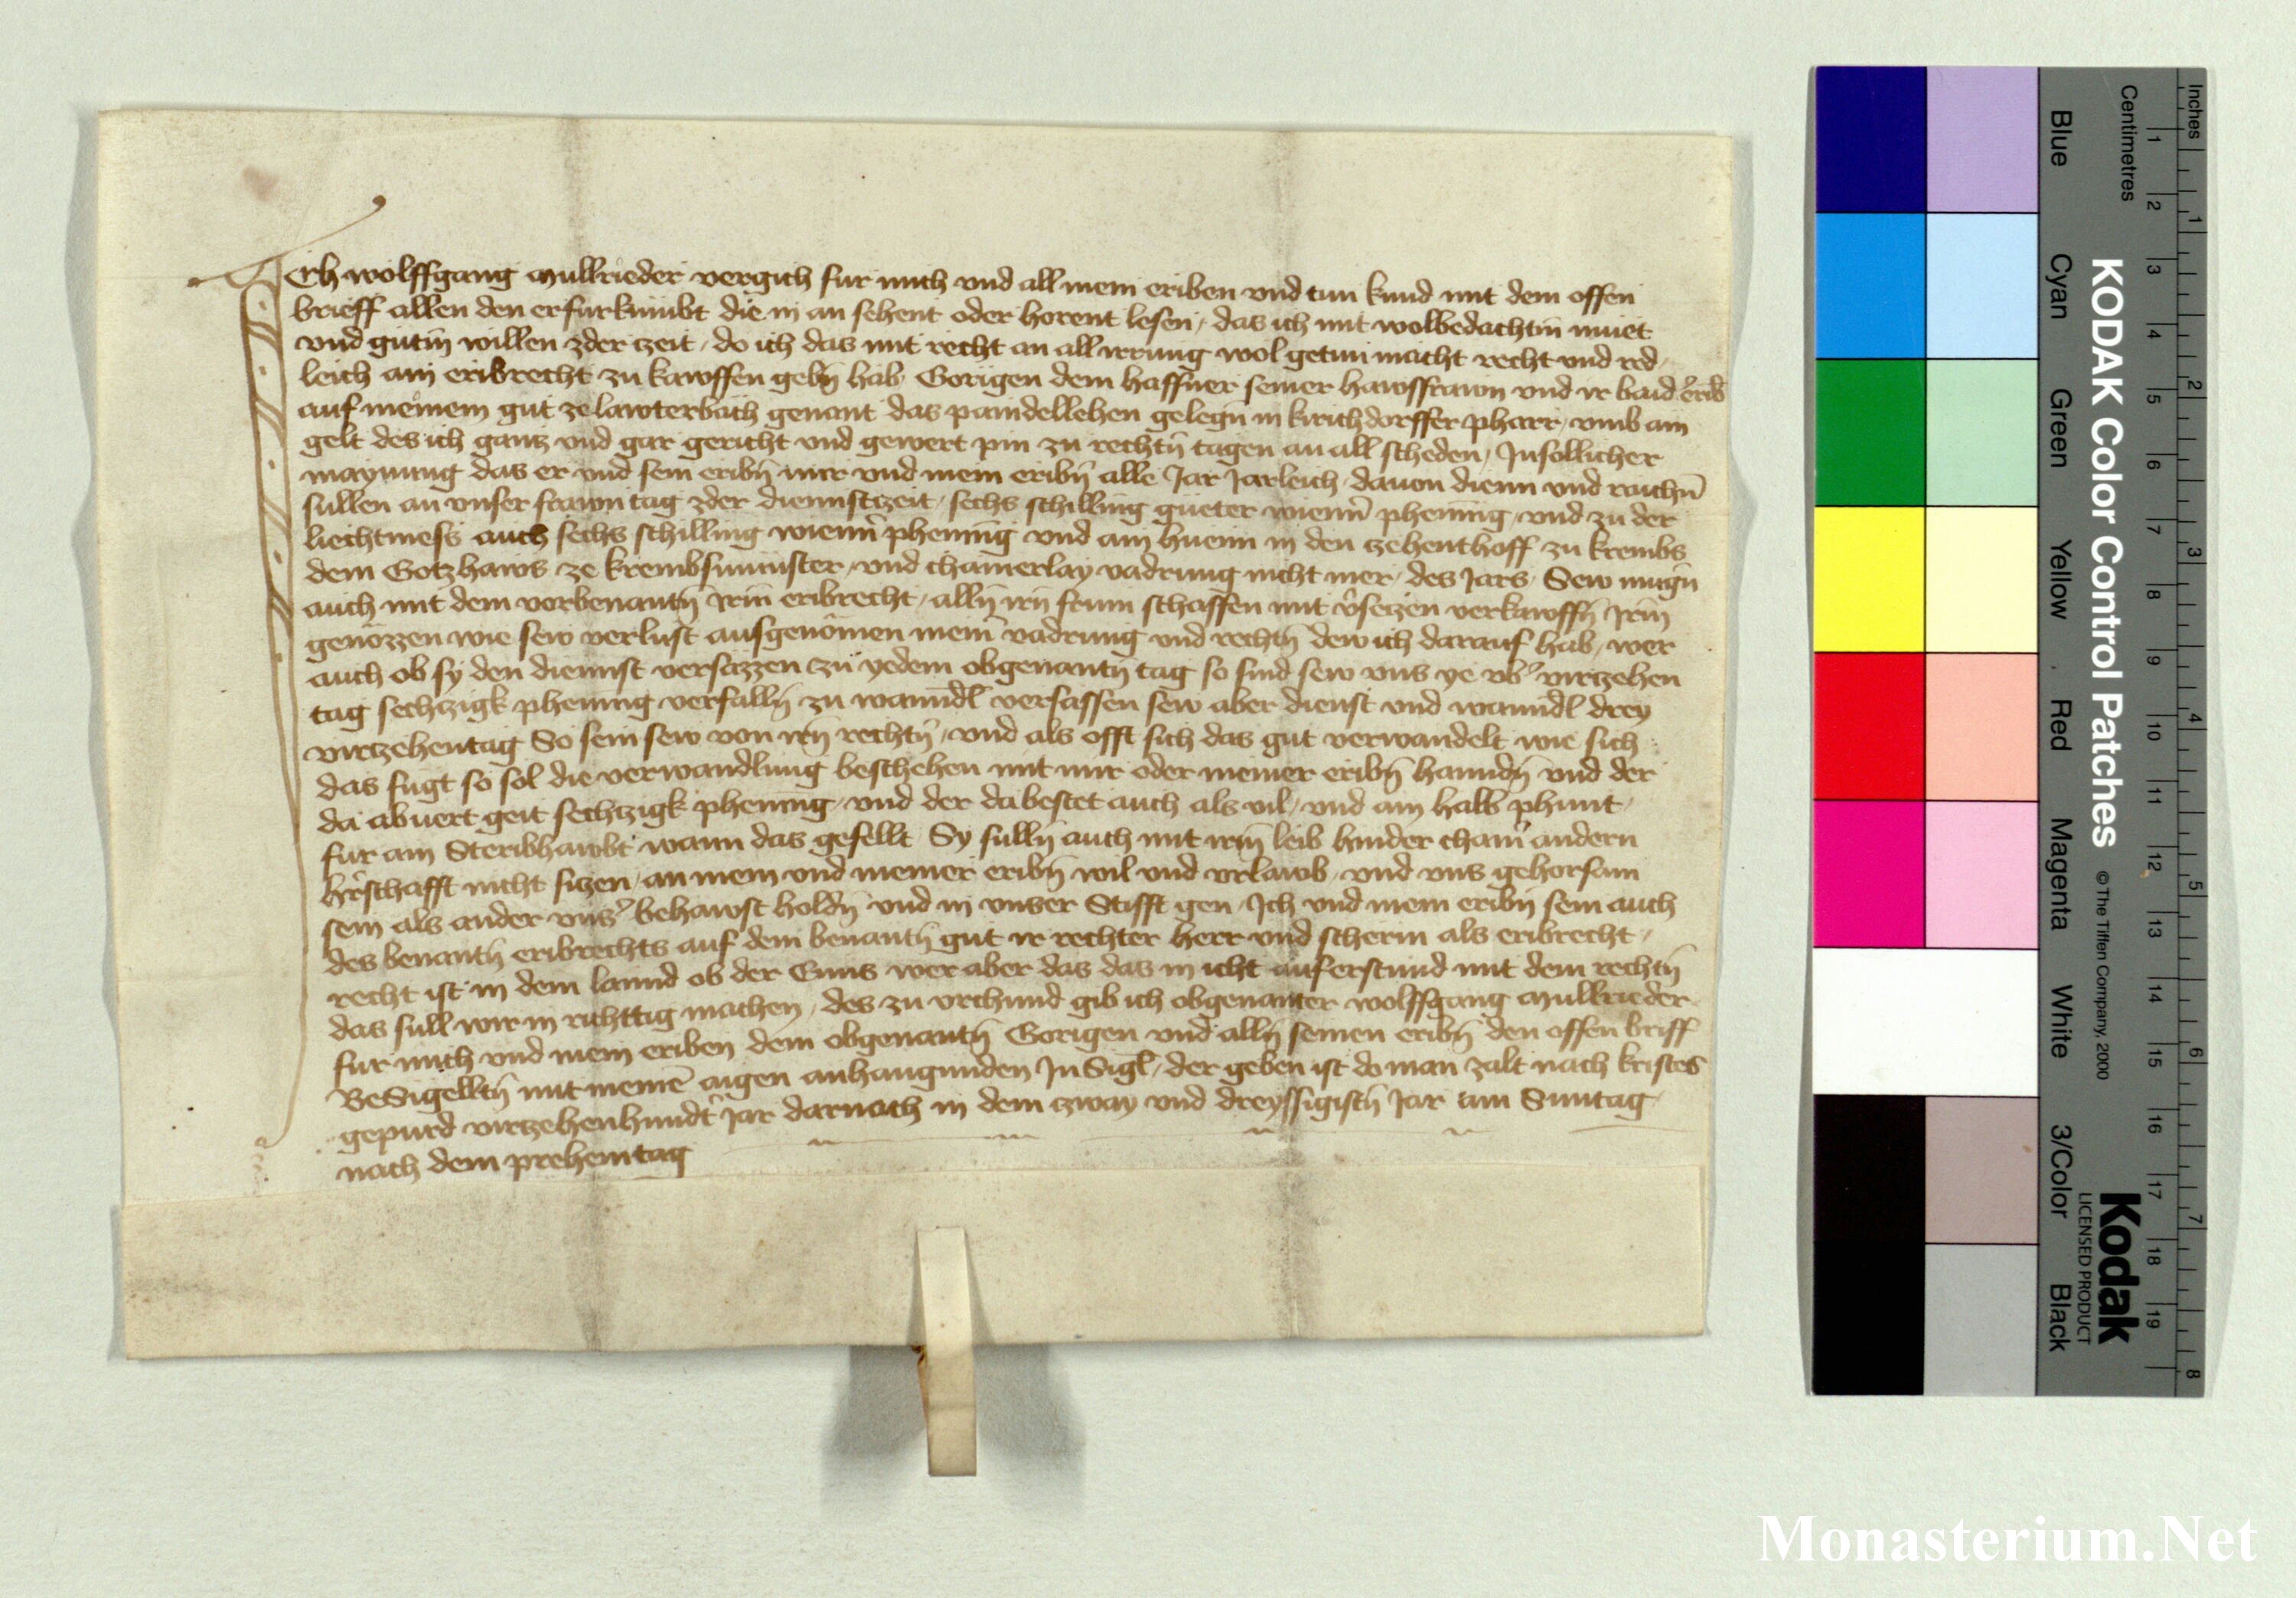 Ich wolffgang mullrieder vergich fur mich vnd all mein eriben vnd tun kund mit dem offen
brieff allen den er furkumbt die in an sehent oder horent lesen / das ich mit wolbedachtm̄ muet
vnd gutm̄ willen zder zeit / do ich das mit recht an all irrung wol getun macht recht vnd red /
leich ain eribrecht zu kawffen gebn̄ hab Gorigen dem haffner seiner hawsfrawn vnd ir baid erib̄
auf meinem gut ze lawterbach genant das paindellehen gelegn̄ in kirichdorffer pharr / vmb ain
gelt des ich gantz vnd gar gericht vnd gewert pin zu rechtn̄ tagen an all scheden / In sollicher
maynung das er vnd sein eribn̄ mir vnd mein eribn̄ alle Jar Jarleich dauon dienn vnd raichn̄
sullen an vnser frawn tag zder diennstzeit / sechs schilling gueter wienn̄ phening / vnd zu der
liechtmess auch sechs schilling wienn̄ phening vnd ain huenn in den zehenthoff zu krembs
dem Gotzhaws ze krembsmunster / vnd chainerlay vadrung nicht mer / des Jars / Sew mugn̄
auch mit dem vorbenantn̄ irm̄ eribrecht / alln̄ irn̄ frum schaffen mit v̄setzen verkawffn̄ Irm̄
genozzen wie sew verlust ausgenomen mein vadrung vnd rechtn̄ dew ich darauf hab / wer
auch ob sy den diennst versazzen zu yedem obgenantn̄ tag so sind sew vns ye vb̄ virtzehen
tag sechtzigk phening verfalln̄ zu wanndl versassen sew aber dienst vnd wanndl drey
virtzehentag So sein sew von irn̄ rechtn̄ / vnd als offt sich das gut verwandelt wie sich
das fugt so sol die verwandlung beschehen mit mir oder meiner eribn̄ hanndn̄ vnd der
da abuert geit sechtzigk phening / vnd der da bestet auch als vil / vnd ain halb phunt /
fur ain Steribhawbt wann das gefellt Sy sulln̄ auch mit irm̄ leib hinder chain̄ andern
h̄rschafft nicht sitzen / an mein vnd meiner eribn̄ wil vnd vrlawb / vnd vns gehorsam
sein als ander vns̄ behawst holdn̄ vnd in vnser Stifft gen Ich vnd mein eribn̄ sein auch
des benantn̄ eribrechts auf dem benantn̄ gut ir rechter herr vnd scherm als eribrecht /
recht ist in dem lannd ob der Enns wer aber das das in icht auferstund mit dem rechtn̄
das sull wir in richttig machen / des zu vrchund gib ich obgenanter wolffgang mullrieder
fur mich vnd mein eriben dem obgenantn̄ Gorigen vnd alln̄ seinen eribn̄ den offen briff
Besigelltn̄ mit meinē aigen anhangunden InSigl / der geben ist do man zalt nach kristes
gepurd virtzehenhundt̄ Jar darnach in dem zway vnd dreyssigistn̄ Jar am Suntag
nach dem prehemtag
Inches
Centimetres
1 2 3 4 5 6 7 8
1 2 3 4 5 6 7 8 9 10 11 12 13 14 15 16 17 18 19
KODAK Color Control Patches © The Tiffen Company, 2000
Kodak
LICENSED PRODUCT
Blue Cyan Green Yellow Red Magenta White 3/Color Black
Monasterium.Net